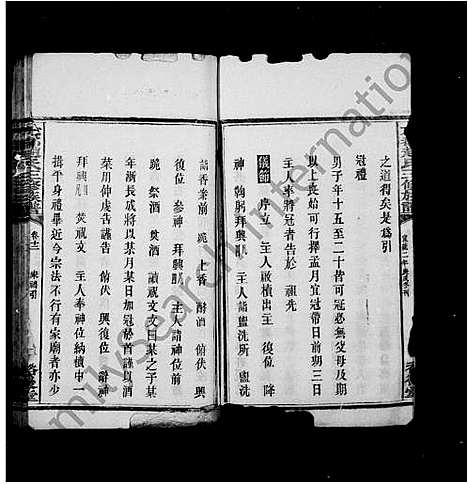 之道得矣是爲引
冠禮
男子年十五至二十皆可冠必無父母及期
以上喪始可行擇孟月宜冠帶日前期三日
主人率將冠者告於 祖先
儀節 序立 主人啟櫝出主 復位 降
神 主人詣盥洗所 盥洗
詣香案前 跪 上香 酹酒 俯伏 興
復位 參神 拜興 主人詣神位前
跪 奠酒 讀祝文 文曰某之子某
年漸長成將以某月某日加冠於首謹以酒
菜用伸虔告謹告 俯伏 興復位 辭神
拜興 焚祝文 主人奉神位納櫝中
揖平身禮畢近今宗法不行有家廟者亦少
卷十二
familysearch international